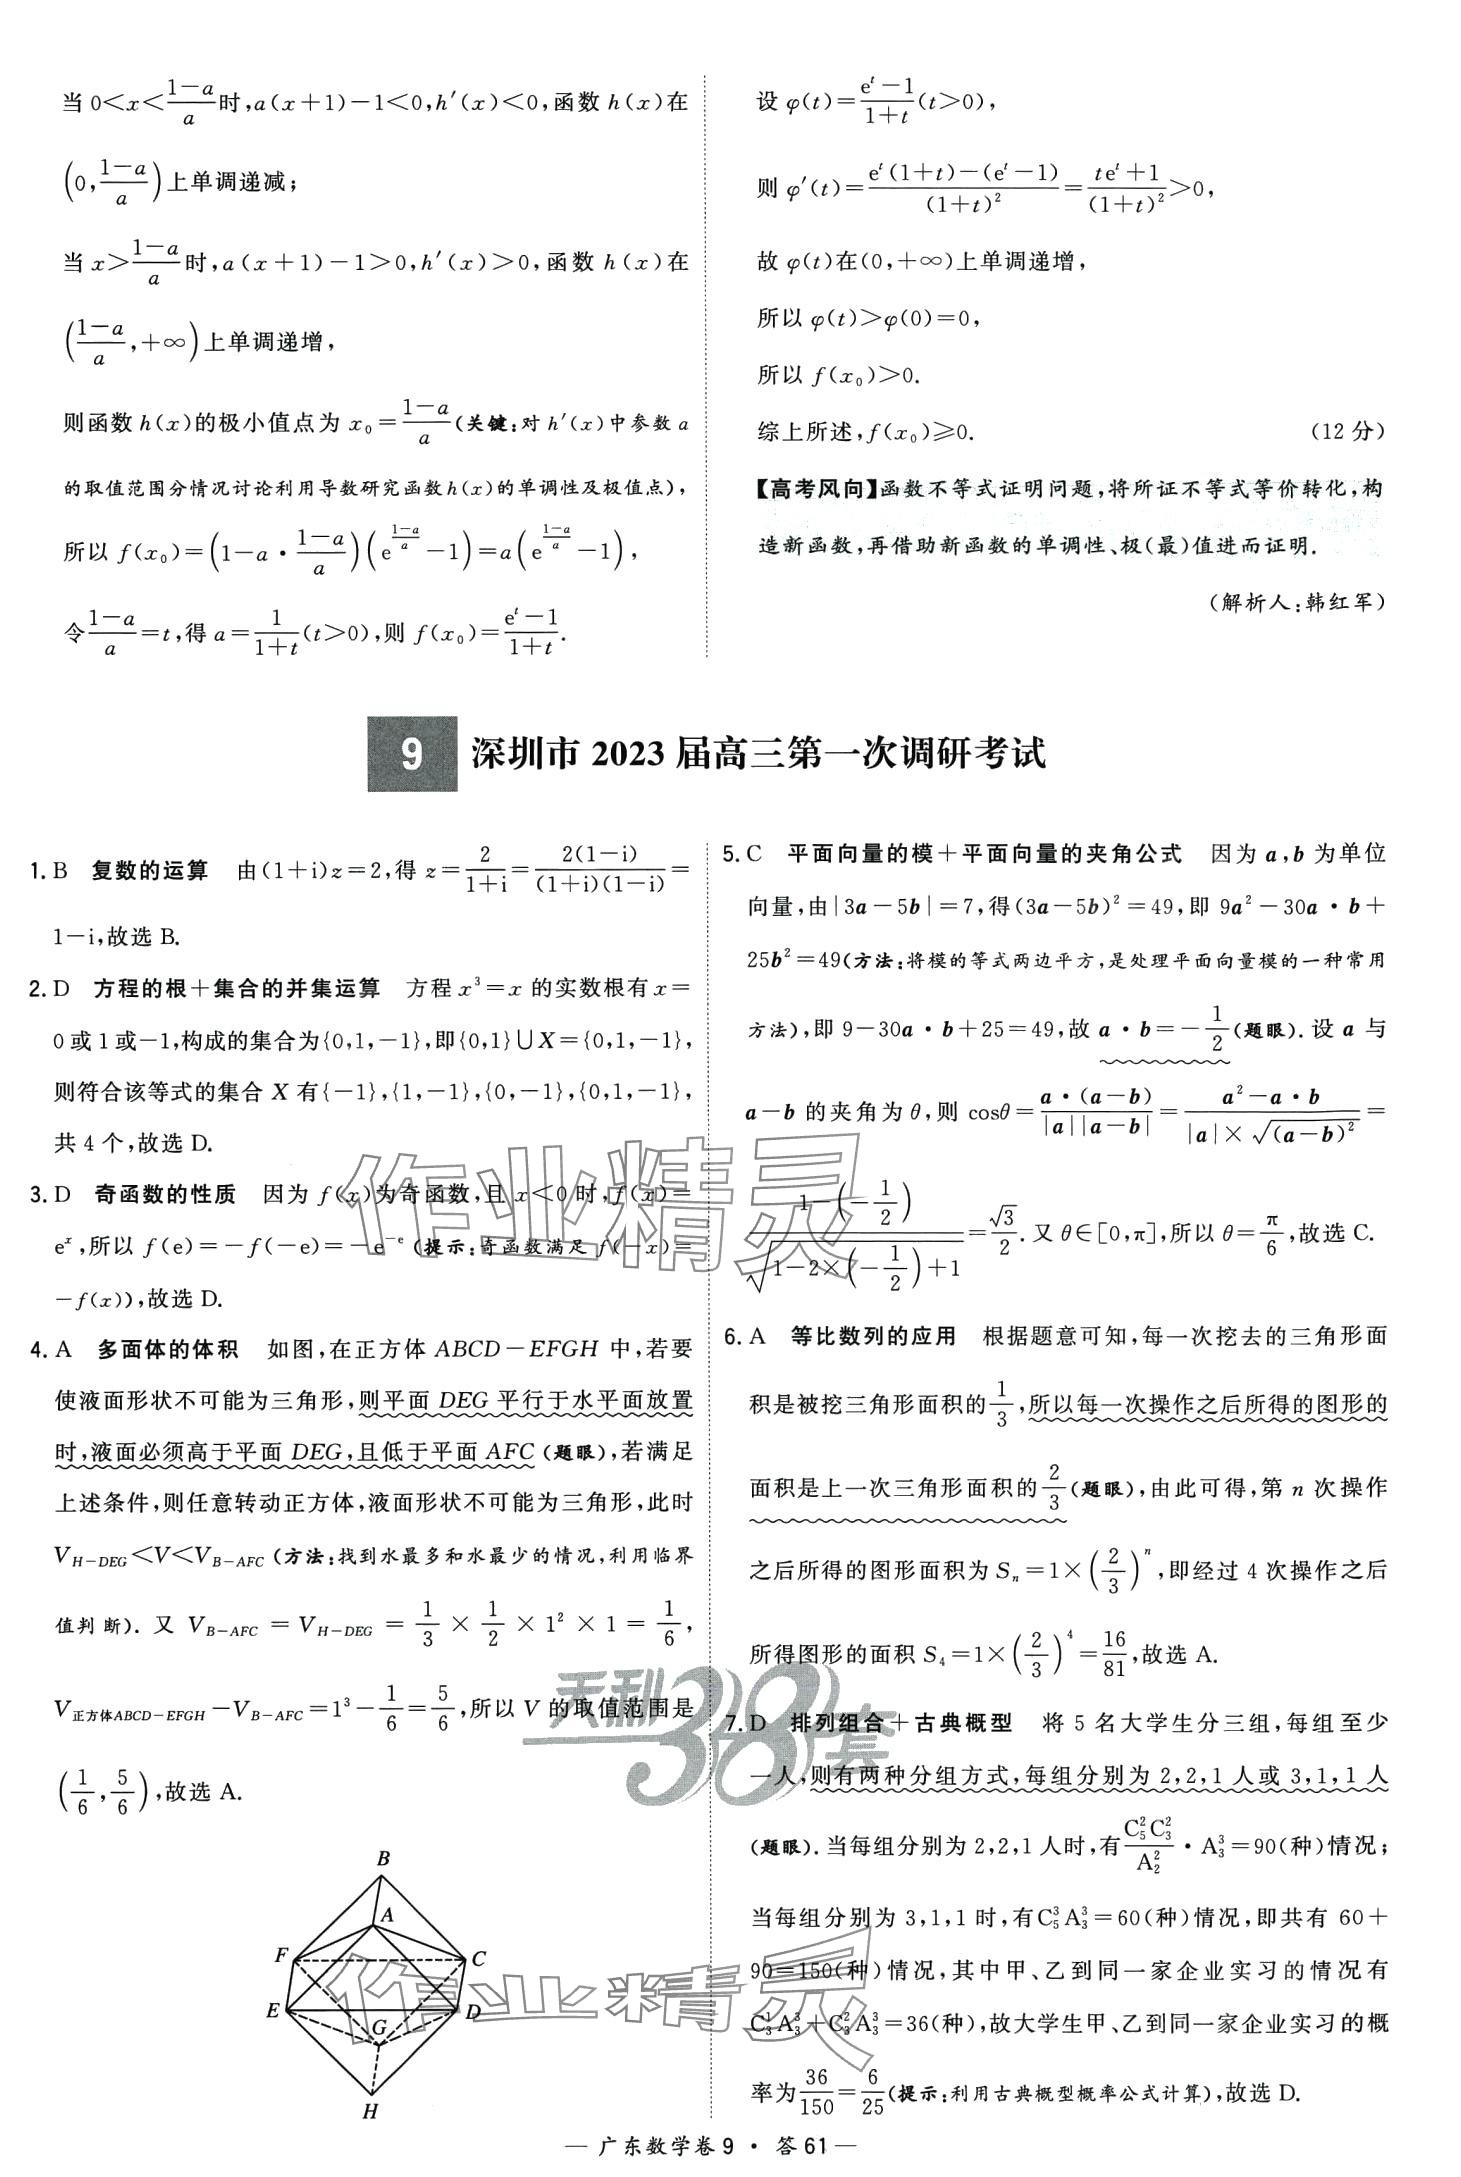 当 0<x<\frac{1-a}{a}时,a(x+1)-1<0,h′(x)<0,函数 h(x)在
(0,\frac{1-a}{a})上单调递减;
当 x>\frac{1-a}{a}时,a(x+1)-1>0,h′(x)>0,函数 h(x)在
(\frac{1-a}{a},+∞)上单调递增,
则函数 h(x)的极小值点为 x₀=\frac{1-a}{a}(关键:对 h′(x)中参数 a
的取值范围分情况讨论利用导数研究函数h(x)的单调性及极值点),
所以 f(x₀)=(1-a·\frac{1-a}{a})(e^{\frac{1-a}{a}}-1)=a(e^{\frac{1-a}{a}}-1),
令\frac{1-a}{a}=t,得 a=\frac{1}{1+t}(t>0),则 f(x₀)=\frac{e^t-1}{1+t}.
设 φ(t)=\frac{e^t-1}{1+t}(t>0),
则 φ′(t)=\frac{e^t(1+t)-(e^t-1)}{(1+t)²}=\frac{te^t+1}{(1+t)²}>0,
故 φ(t)在(0,+∞)上单调递增,
所以 φ(t)>φ(0)=0,
所以 f(x₀)>0.
综上所述,f(x₀)≥0. (12 分)
【高考风向】函数不等式证明问题,将所证不等式等价转化,构
造新函数,再借助新函数的单调性、极(最)值进而证明.
(解析人:韩红军)
9 深圳市 2023 届高三第一次调研考试
1. B 复数的运算 由(1+i)z=2,得 z=\frac{2}{1+i}=\frac{2(1-i)}{(1+i)(1-i)}=
1-i,故选 B.
2. D 方程的根+集合的并集运算 方程 x³=x 的实数根有 x=
0 或 1 或-1,构成的集合为{0,1,-1},即{0,1}∪X={0,1,-1},
则符合该等式的集合 X 有{-1},{1,-1},{0,-1},{0,1,-1},
共 4 个,故选 D.
3. D 奇函数的性质 因为 f(x)为奇函数,且 x<0 时,f(x)=
e^x,所以 f(e)=-f(-e)=-e^{-e}(提示:奇函数满足 f(-x)=
-f(x)),故选 D.
4. A 多面体的体积 如图,在正方体 ABCD-EFGH 中,若要
使液面形状不可能为三角形,则平面 DEG 平行于水平面放置
时,液面必须高于平面 DEG,且低于平面 AFC(题眼),若满足
上述条件,则任意转动正方体,液面形状不可能为三角形,此时
V_{H-DEG}<V<V_{B-AFC}(方法:找到水最多和水最少的情况,利用临界
值判断). 又 V_{B-AFC}=V_{H-DEG}=\frac{1}{3}×\frac{1}{2}×1²×1=\frac{1}{6},
V_{正方体ABCD-EFGH}-V_{B-AFC}=1³-\frac{1}{6}=\frac{5}{6},所以 V 的取值范围是
(\frac{1}{6},\frac{5}{6}),故选 A.
B
A
F
C
E
D
G
H
5. C 平面向量的模+平面向量的夹角公式 因为 a,b 为单位
向量,由|3a-5b|=7,得(3a-5b)²=49,即 9a²-30a·b+
25b²=49(方法:将模的等式两边平方,是处理平面向量模的一种常用
方法),即 9-30a·b+25=49,故 a·b=-\frac{1}{2}(题眼). 设 a 与
a-b 的夹角为 θ,则 cosθ=\frac{a·(a-b)}{|a||a-b|}=\frac{a²-a·b}{|a|×\sqrt{(a-b)²}}=
\frac{1-(-\frac{1}{2})}{\sqrt{1-2×(-\frac{1}{2})+1}}=\frac{\sqrt{3}}{2}. 又 θ∈[0,π],所以 θ=\frac{π}{6},故选 C.
6. A 等比数列的应用 根据题意可知,每一次挖去的三角形面
积是被挖三角形面积的\frac{1}{3},所以每一次操作之后所得的图形的
面积是上一次三角形面积的\frac{2}{3}(题眼),由此可得,第 n 次操作
之后所得的图形面积为 S_n=1×(\frac{2}{3})^n,即经过 4 次操作之后
所得图形的面积 S₄=1×(\frac{2}{3})⁴=\frac{16}{81},故选 A.
7. D 排列组合+古典概型 将 5 名大学生分三组,每组至少
一人,则有两种分组方式,每组分别为 2,2,1 人或 3,1,1 人
(题眼). 当每组分别为 2,2,1 人时,有\frac{C_5^2C_3^2}{A_2^2}·A_3^3=90(种)情况;
当每组分别为 3,1,1 时,有C_5^3A_3^3=60(种)情况,即共有 60+
90=150(种)情况,其中甲、乙到同一家企业实习的情况有
C_3^1A_3^3+C_3^2A_3^3=36(种),故大学生甲、乙到同一家企业实习的概
率为\frac{36}{150}=\frac{6}{25}(提示:利用古典概型概率公式计算),故选 D.
作业精灵
天利38套
作业精灵
— 广东数学卷 9 · 答 61 —